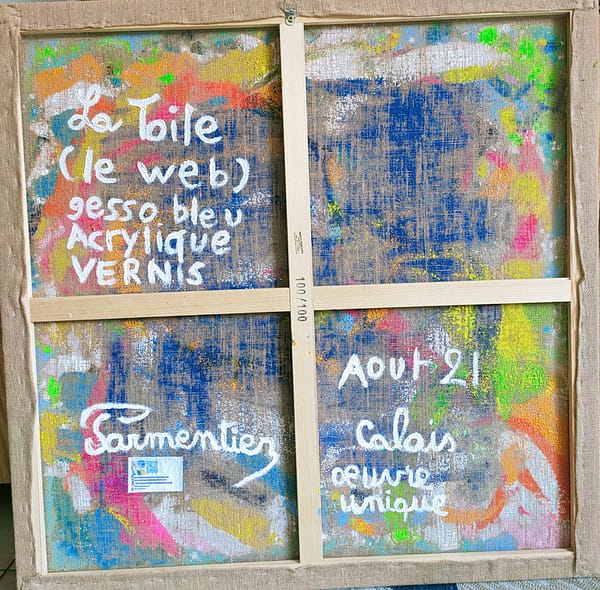 La Toile
(le web)
gesso bleu
Acrylique
VERNIS
100/100
Parmentier
Aout 21
Calais
oeuvre
unique